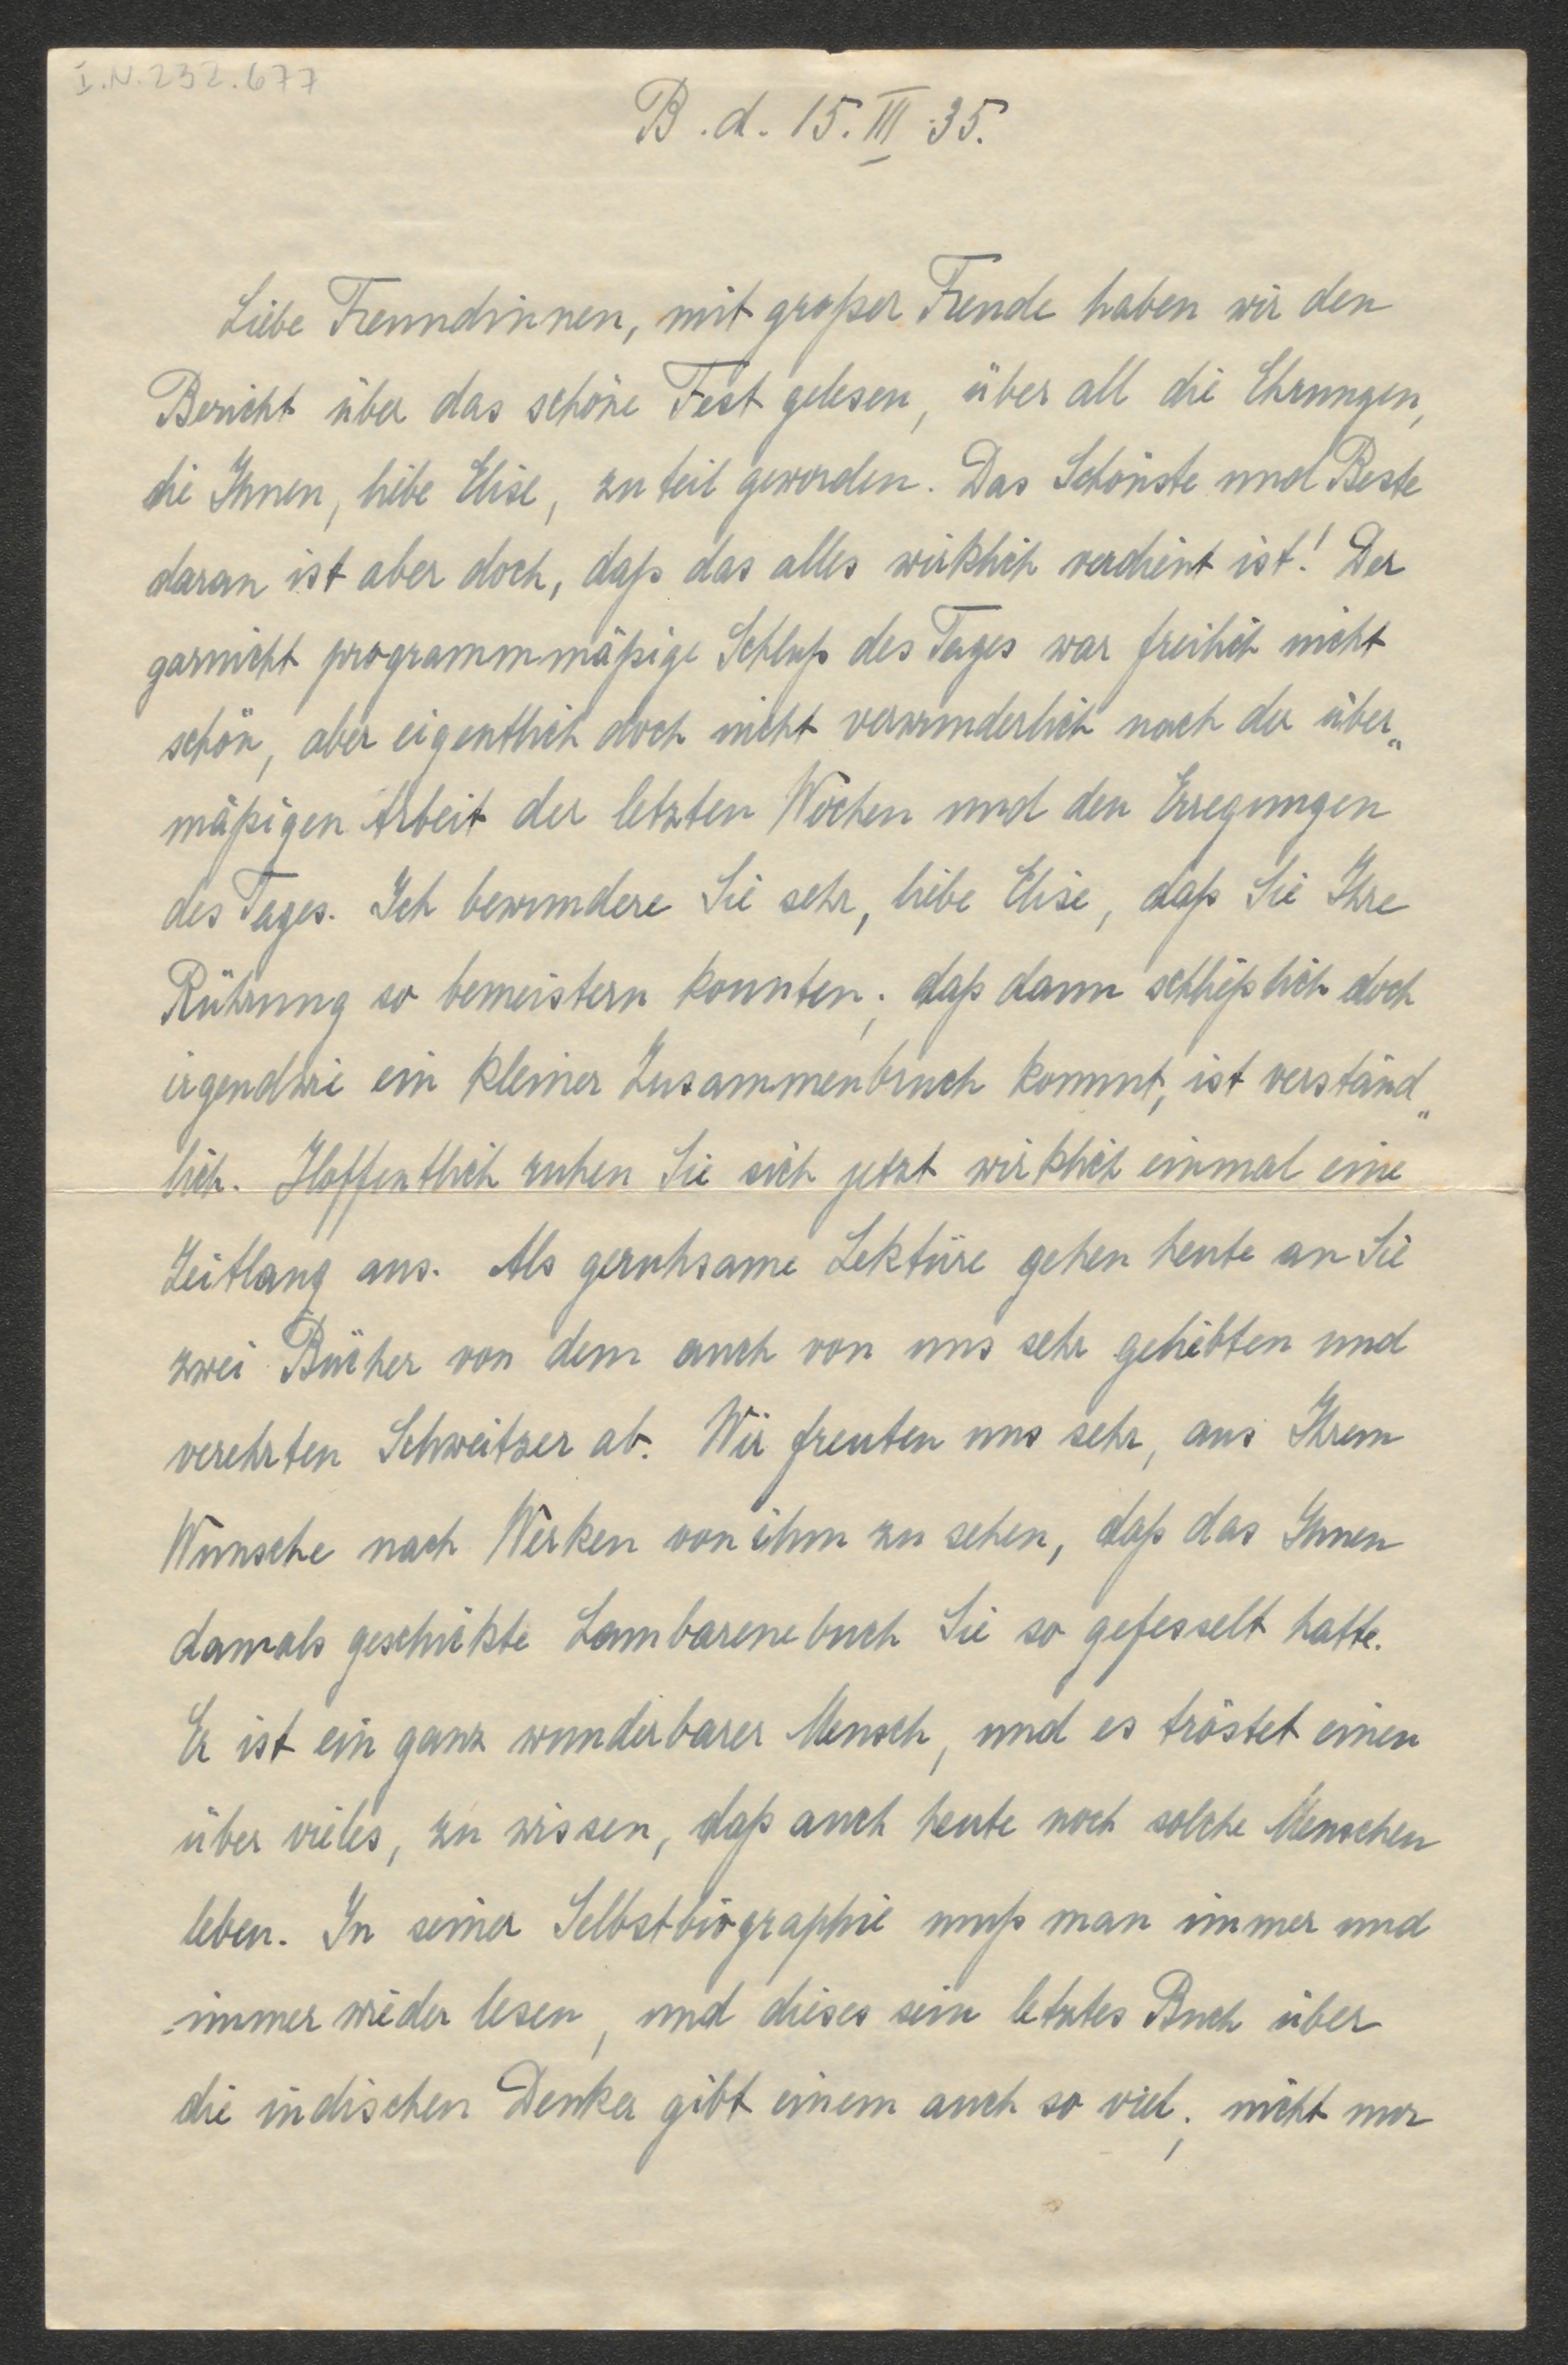 I.N. 232.677
B. d. 15. III. 35.
Liebe Freundinnen, mit großer Freude haben wir den
Bericht über das schöne Fest gelesen, über all die Ehrungen,
die Ihnen, liebe Elise, zu teil geworden. Das Schönste und Beste
daran ist aber doch, daß das alles wirklich verdient ist! Der
garnicht programmmäßige Schluß des Tages war freilich nicht
schön, aber eigentlich doch nicht verwunderlich nach der über„
mäßigen Arbeit der letzten Wochen und den Erregungen
des Tages. Ich bewundere Sie sehr, liebe Elise, daß Sie Ihre
Rührung so bemeistern konnten; daß dann schließlich doch
irgendwie ein kleiner Zusammenbruch kommt, ist verständ„
lich. Hoffentlich ruhen Sie sich jetzt wirklich einmal eine
Zeitlang aus. Als geruhsame Lektüre gehen heute an Sie
zwei Bücher von dem auch von uns sehr geliebten und
verehrten Schweitzer ab. Wir freuten uns sehr, aus Ihrem
Wunsche nach Werken von ihm zu sehen, daß das Ihnen
damals geschickte Lambarenebuch Sie so gefesselt hatte.
Er ist ein ganz wunderbarer Mensch, und es tröstet einen
über vieles, zu wissen, daß auch heute noch solche Menschen
leben. In seiner Selbstbiographie muß man immer und
immer wieder lesen, und dieses sein letztes Buch über
die indischen Denker gibt einem auch so viel; nicht nur